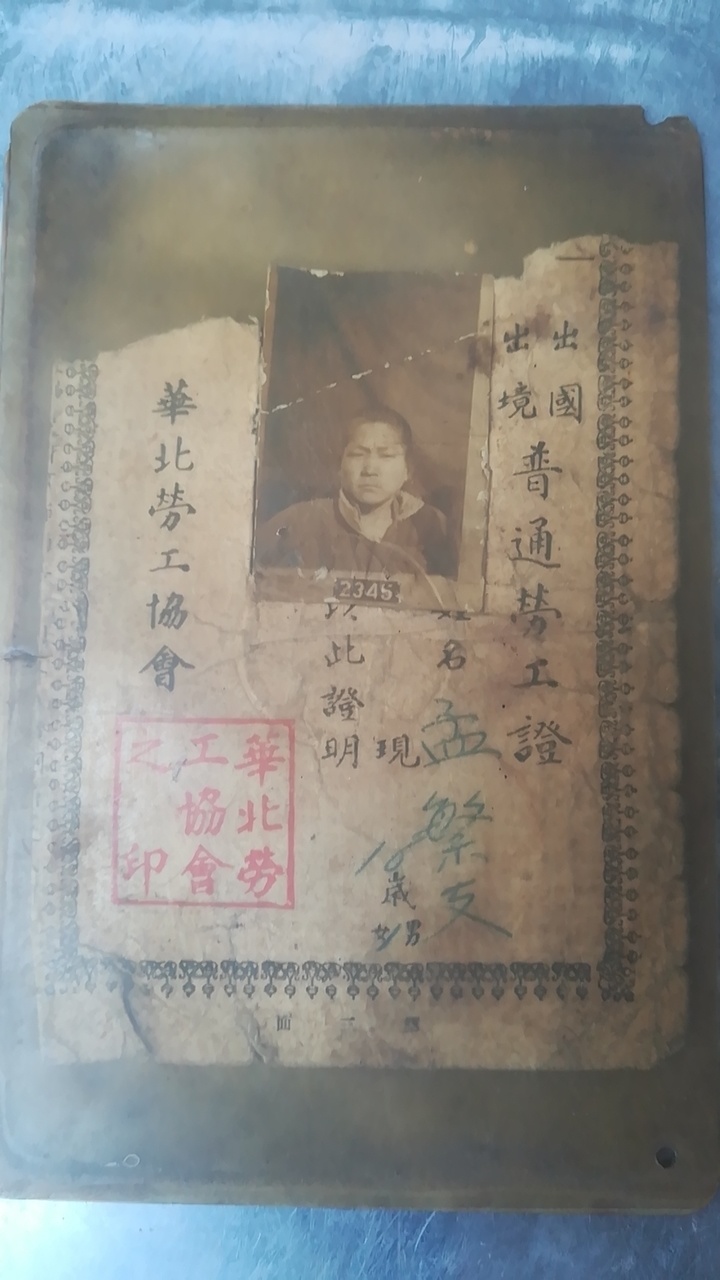 出國
出境
普通勞工證
姓名 孟繁支
現18歲
男
女
以此證明
2345
華北勞工協會
華北勞
工協會
之印
第一面